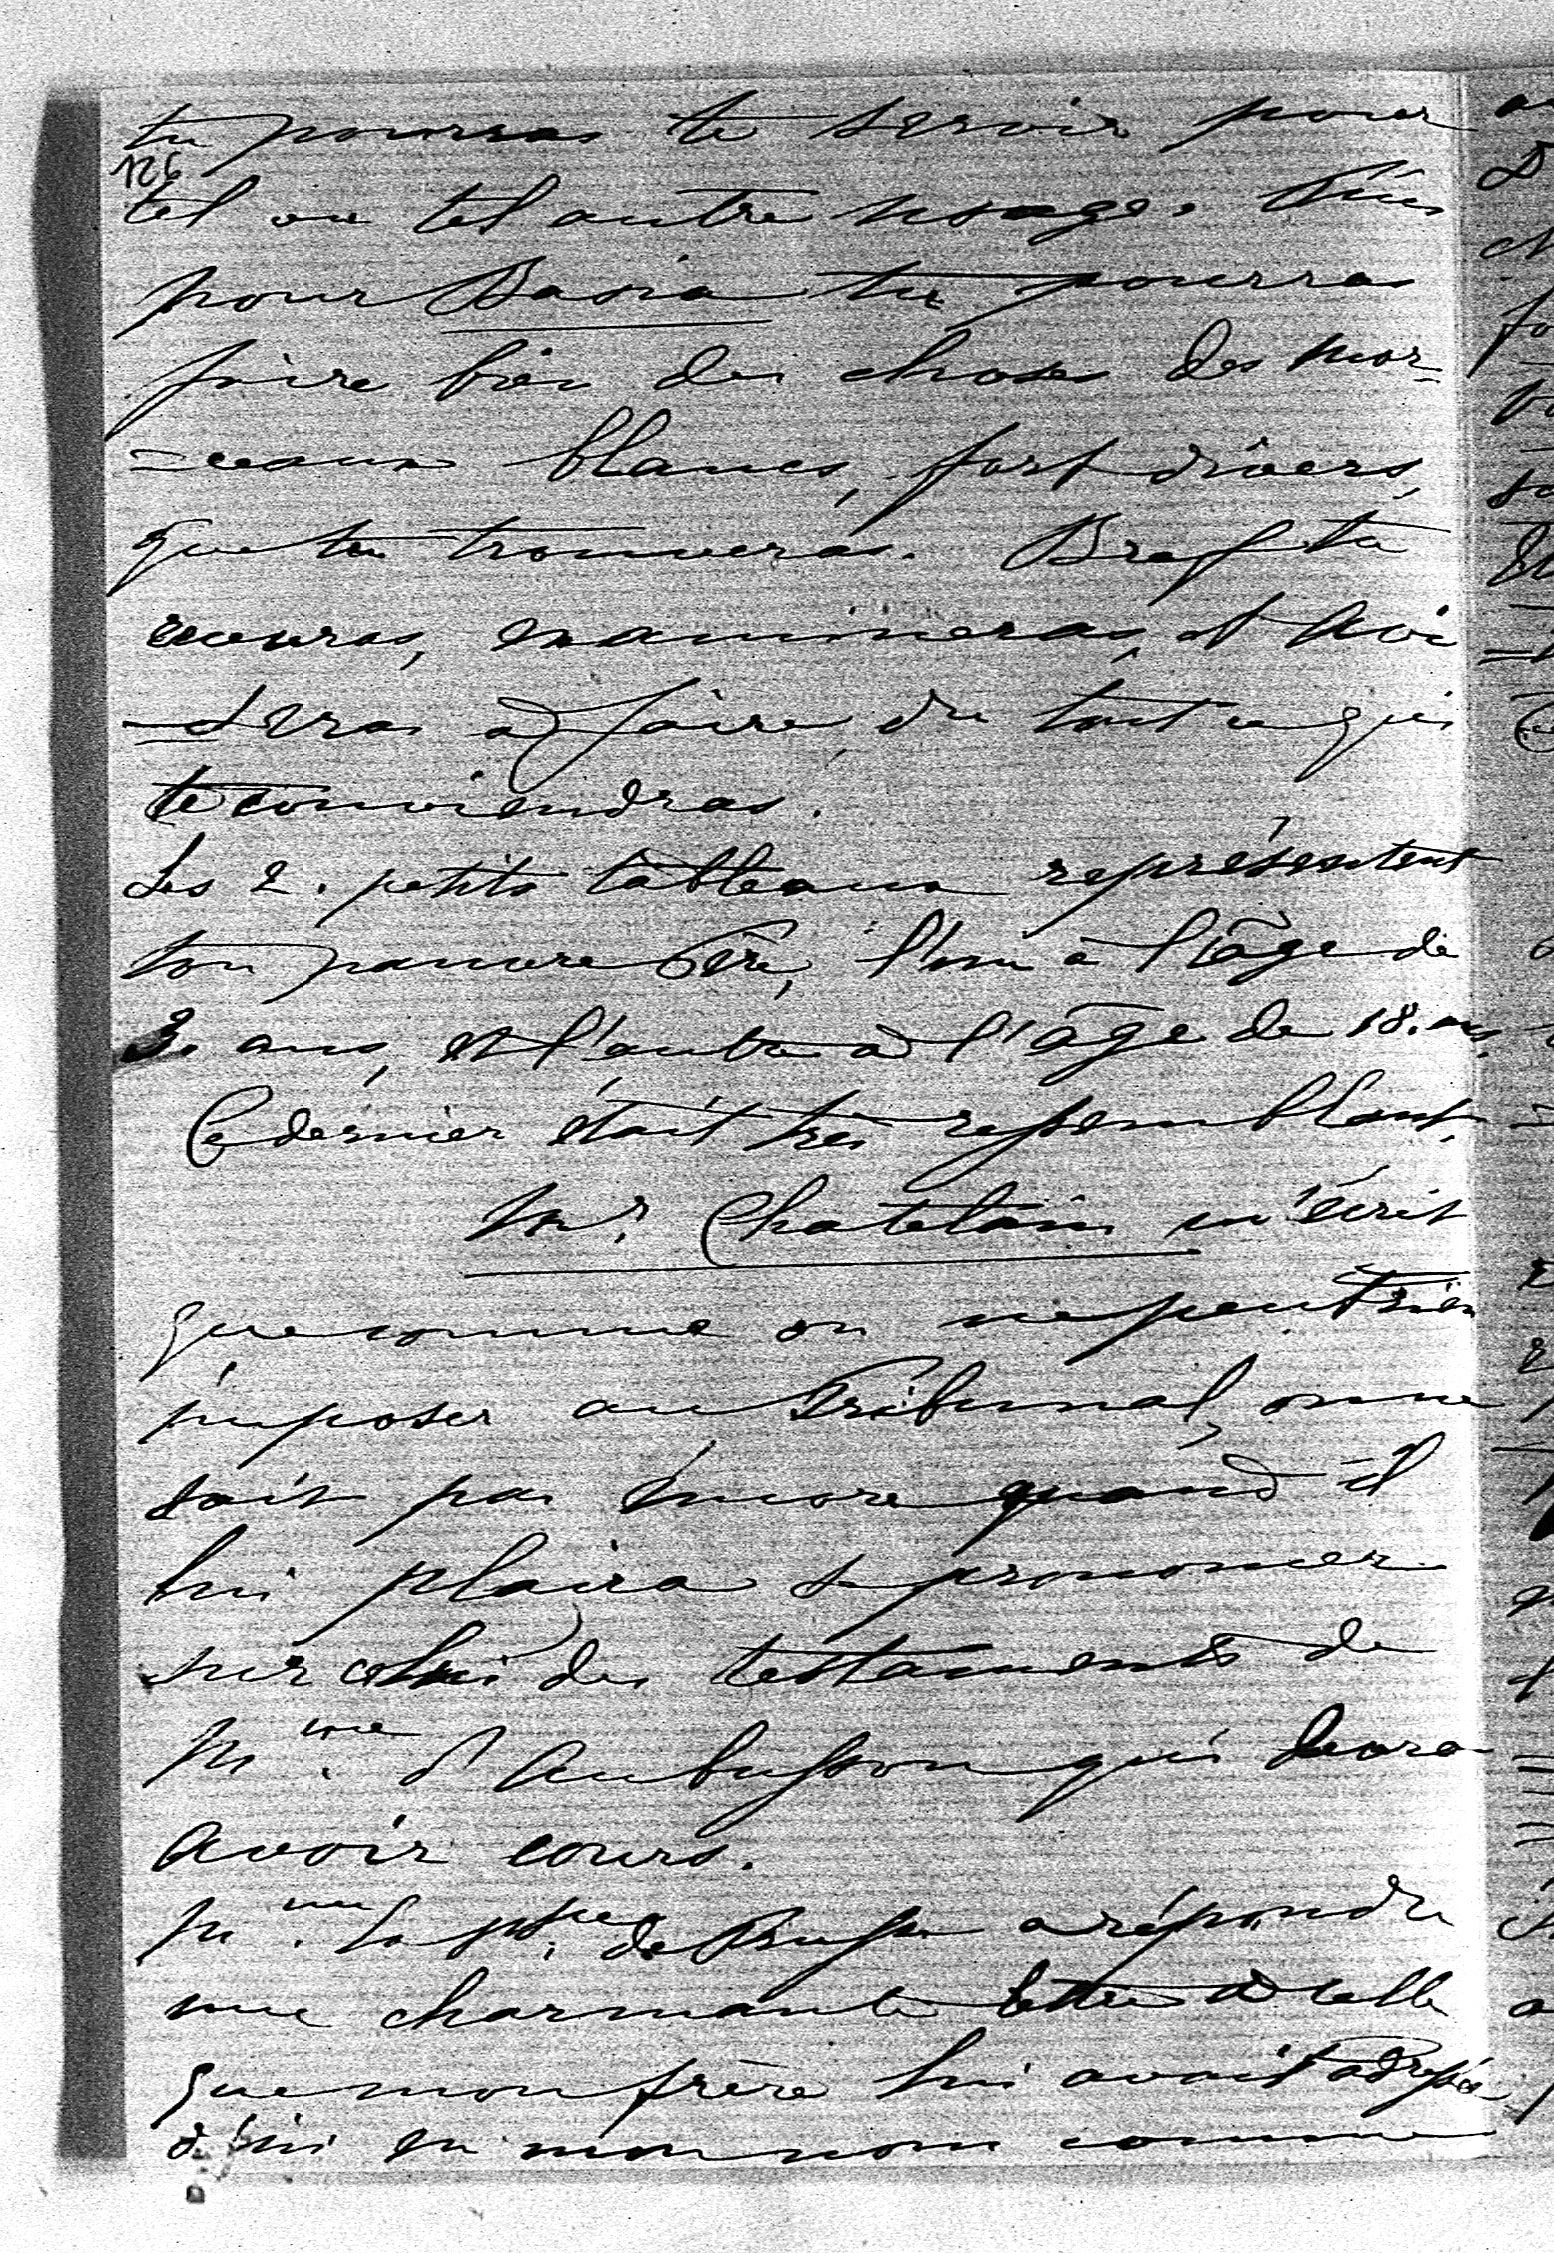 tu pourras te servir pour
126
tel ou tel autre usage. Puis
pour Basia tu pourras
faire bien des choses des mor=
=ceaux blancs, fort divers,
que tu trouveras. Bref tu
recevras, examineras, et
à faire du tout ce qui
te conviendras.
Les 2. petits tableaux représentent
ton pauvre Père, l'un à l'âge de
3. ans, et l'autre à l'âge de 18. ans.
Ce dernier était très ressemblant.
Mr. Chatelain m'écrit
que comme on ne peut rien
imposer au Tribunal, on ne
sait pas encore quand il
lui plaira se prononcer
sur celui des testaments de
Mme. d'Aubusson qui devra
avoir cours.
Mme. la Psse. de Prusse a répondu
une charmante lettre à celle
que mon frère lui avait adressée
d'ici en mon nom comme